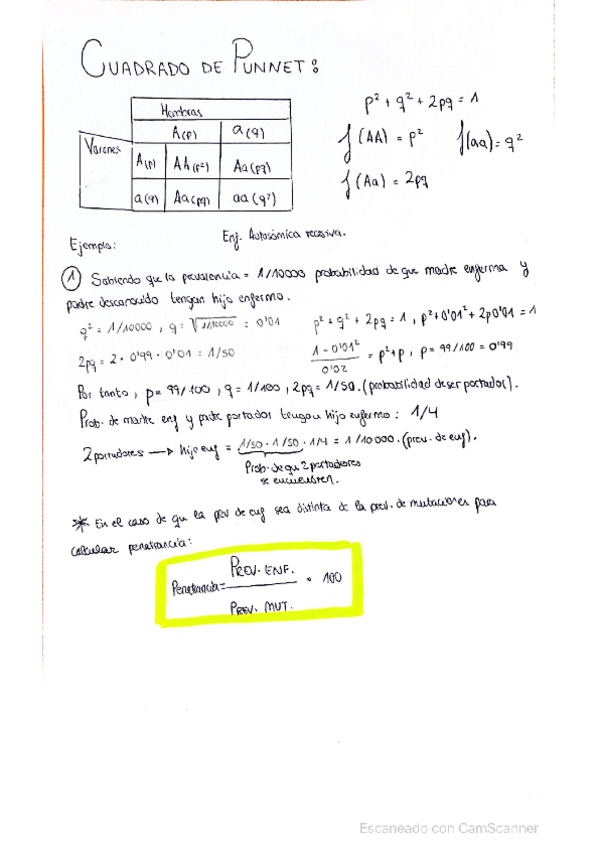 CUADRADO DE PUNNET:
Hembras
Varones
A(p) a(q)
A(p) AA(p²) Aa(pq)
a(q) Aa(pq) aa(q²)
p² + q² + 2pq = 1
f(AA) = p² f(aa) = q²
f(Aa) = 2pq
Enf. Autosómica recesiva.
Ejemplo:
① Sabiendo que la prevalencia = 1/10000 probabilidad de que madre enferma y
padre desconocido tengan hijo enfermo.
q² = 1/10000, q = √1/10000 = 0'01
p² + q² + 2pq = 1, p² + 0'01² + 2p0'01 = 1
2pq = 2 · 0'99 · 0'01 = 1/50
1 - 0'01² / 0'02 = p² + p, p = 99/100 = 0'99
Por tanto, p = 99/100, q = 1/100, 2pq = 1/50. (probabilidad de ser portador).
Prob. de madre enf y padre portador tengan hijo enfermo: 1/4
2 portadores → hijo enf = 1/50 · 1/50 · 1/4 = 1/10000. (prev. de enf).
Prob. de qu 2 portadores
se encuentren.
* En el caso de qu la prev de enf sea distinta de la prev. de mutaciones para
calcular penetrancia:
Penetrancia = PREV. ENF. / PREV. MUT. · 100
Escaneado con CamScanner